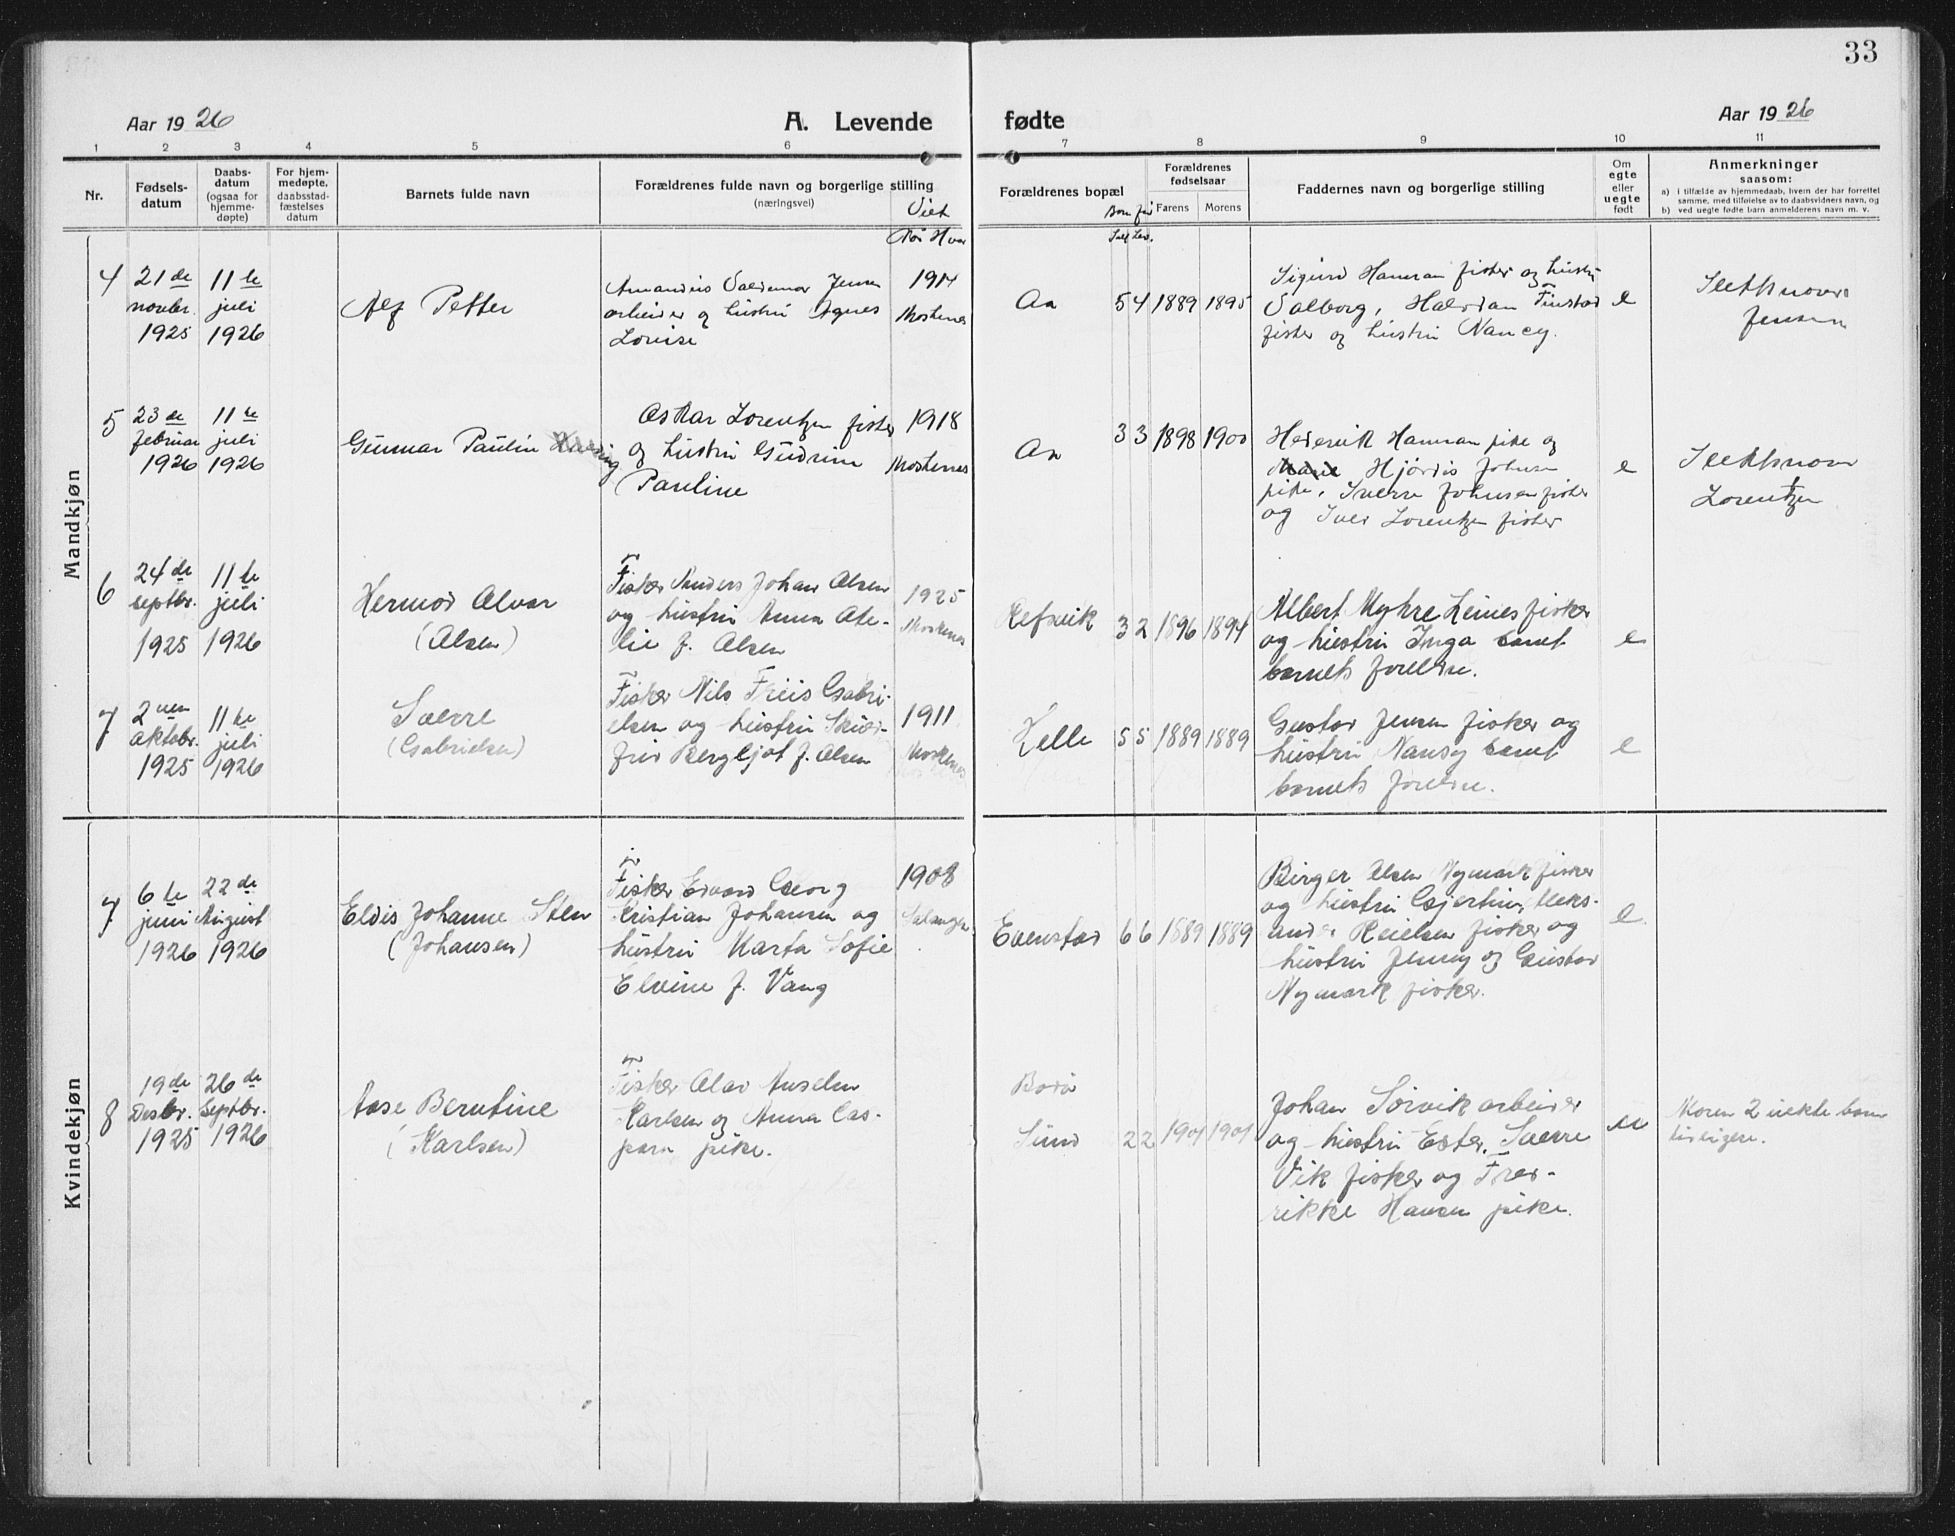 33
Aar 1926
A. Levende
fødte
Aar 1926
1 2 3 4 5 6
7 8 9 10 11
Nr.
Fødsels-
datum
Daabs-
datum
(ogsaa for
hjemme-
døpte)
For hjem-
medøpte,
daabsstad-
fæstelses
datum
Barnets fulde navn
Forældrenes fulde navn og borgerlige stilling
(næringsvei)
Viet
Hvor
Forældrenes bopæl
Forældrenes
fødselsaar
Farens
Morens
Faddernes navn og borgerlige stilling
Om
egte
eller
uegte
født
Anmerkninger
saasom:
a) i tilfælde av hjemmedaab, hvem der har forrettet
samme, med tilføielse av to daabsvidners navn, og
b) ved uegte fødte barn anmelderens navn m. v.
Mandkjøn
4
21 de
novbr.
1925
11 te
juli
1926
Alf Petter
Valdemar Jensen
arbeider og hustru Agnes
Louise
1914
Moskenes
Aa
5 4
1889
1895
Sigurd Hansen fisker og hustru
Valborg, Halvdan Finstad
fisker og hustru Nancy.
e
Jensen
5
23 de
februar
1926
11 te
juli
1926
Gunnar Paulin
Oskar Lorentzen fisker
og hustru Gudrun
Pauline
1918
Moskenes
Aa
3 3
1898
1900
Hansen pike og
Hjördis Johnsen
pike, Sverre Johnsen fisker
og Iver Lorentzen fisker
e
Lorentzen
6
24 de
septbr.
1925
11 te
juli
1926
Hermod Alvar
(Olsen)
Fisker Anders Johan Olsen
og hustru Anna Ote-
lie f. Olsen
1925
Moskenes
Refsvik
3 2
1896
1894
Albert Myhre Leines fisker
og hustru Inga samt
barnets foreldre.
e
7
2 nen
oktobr.
1925
11 te
juli
1926
Sverre
(Gabrielsen)
Fisker Nils Friis Gabri-
elsen og hustru Sküld-
frid Bergljot f. Olsen
1911
Moskenes
Helle
5 5
1889
1889
Gustav Jensen fisker og
hustru Nansy samt
barnets foreldre.
e
Kvindekjøn
7
6 te
juni
1926
22 de
August
1926
Eldis Johanne Sten
(Johansen)
Fisker Edvard Georg
Kristian Johansen og
hustru Marta Sofie
Elvine f. Vang
1908
Salangen
Evenstad
6 6
1889
1889
Birger Olsen Nymark fisker
og hustru Gjertine, Aleks-
ander Reielsen fisker og
hustru Jenny og Gustav
Nymark fisker.
e
8
19 de
Desbr.
1925
26 de
Septbr.
1926
Aase Berntine
(Karlsen)
Fisker Olav Anselm
Karlsen og Anna Cas-
para pike.
Bodö
Sund
2 2
1901
1901
Johan Sörvik arbeider
og hustru Ester, Sverre
Vik fisker og Fred-
rikke Hansen pike.
u
Moren 2 uekte barn
tidligere.